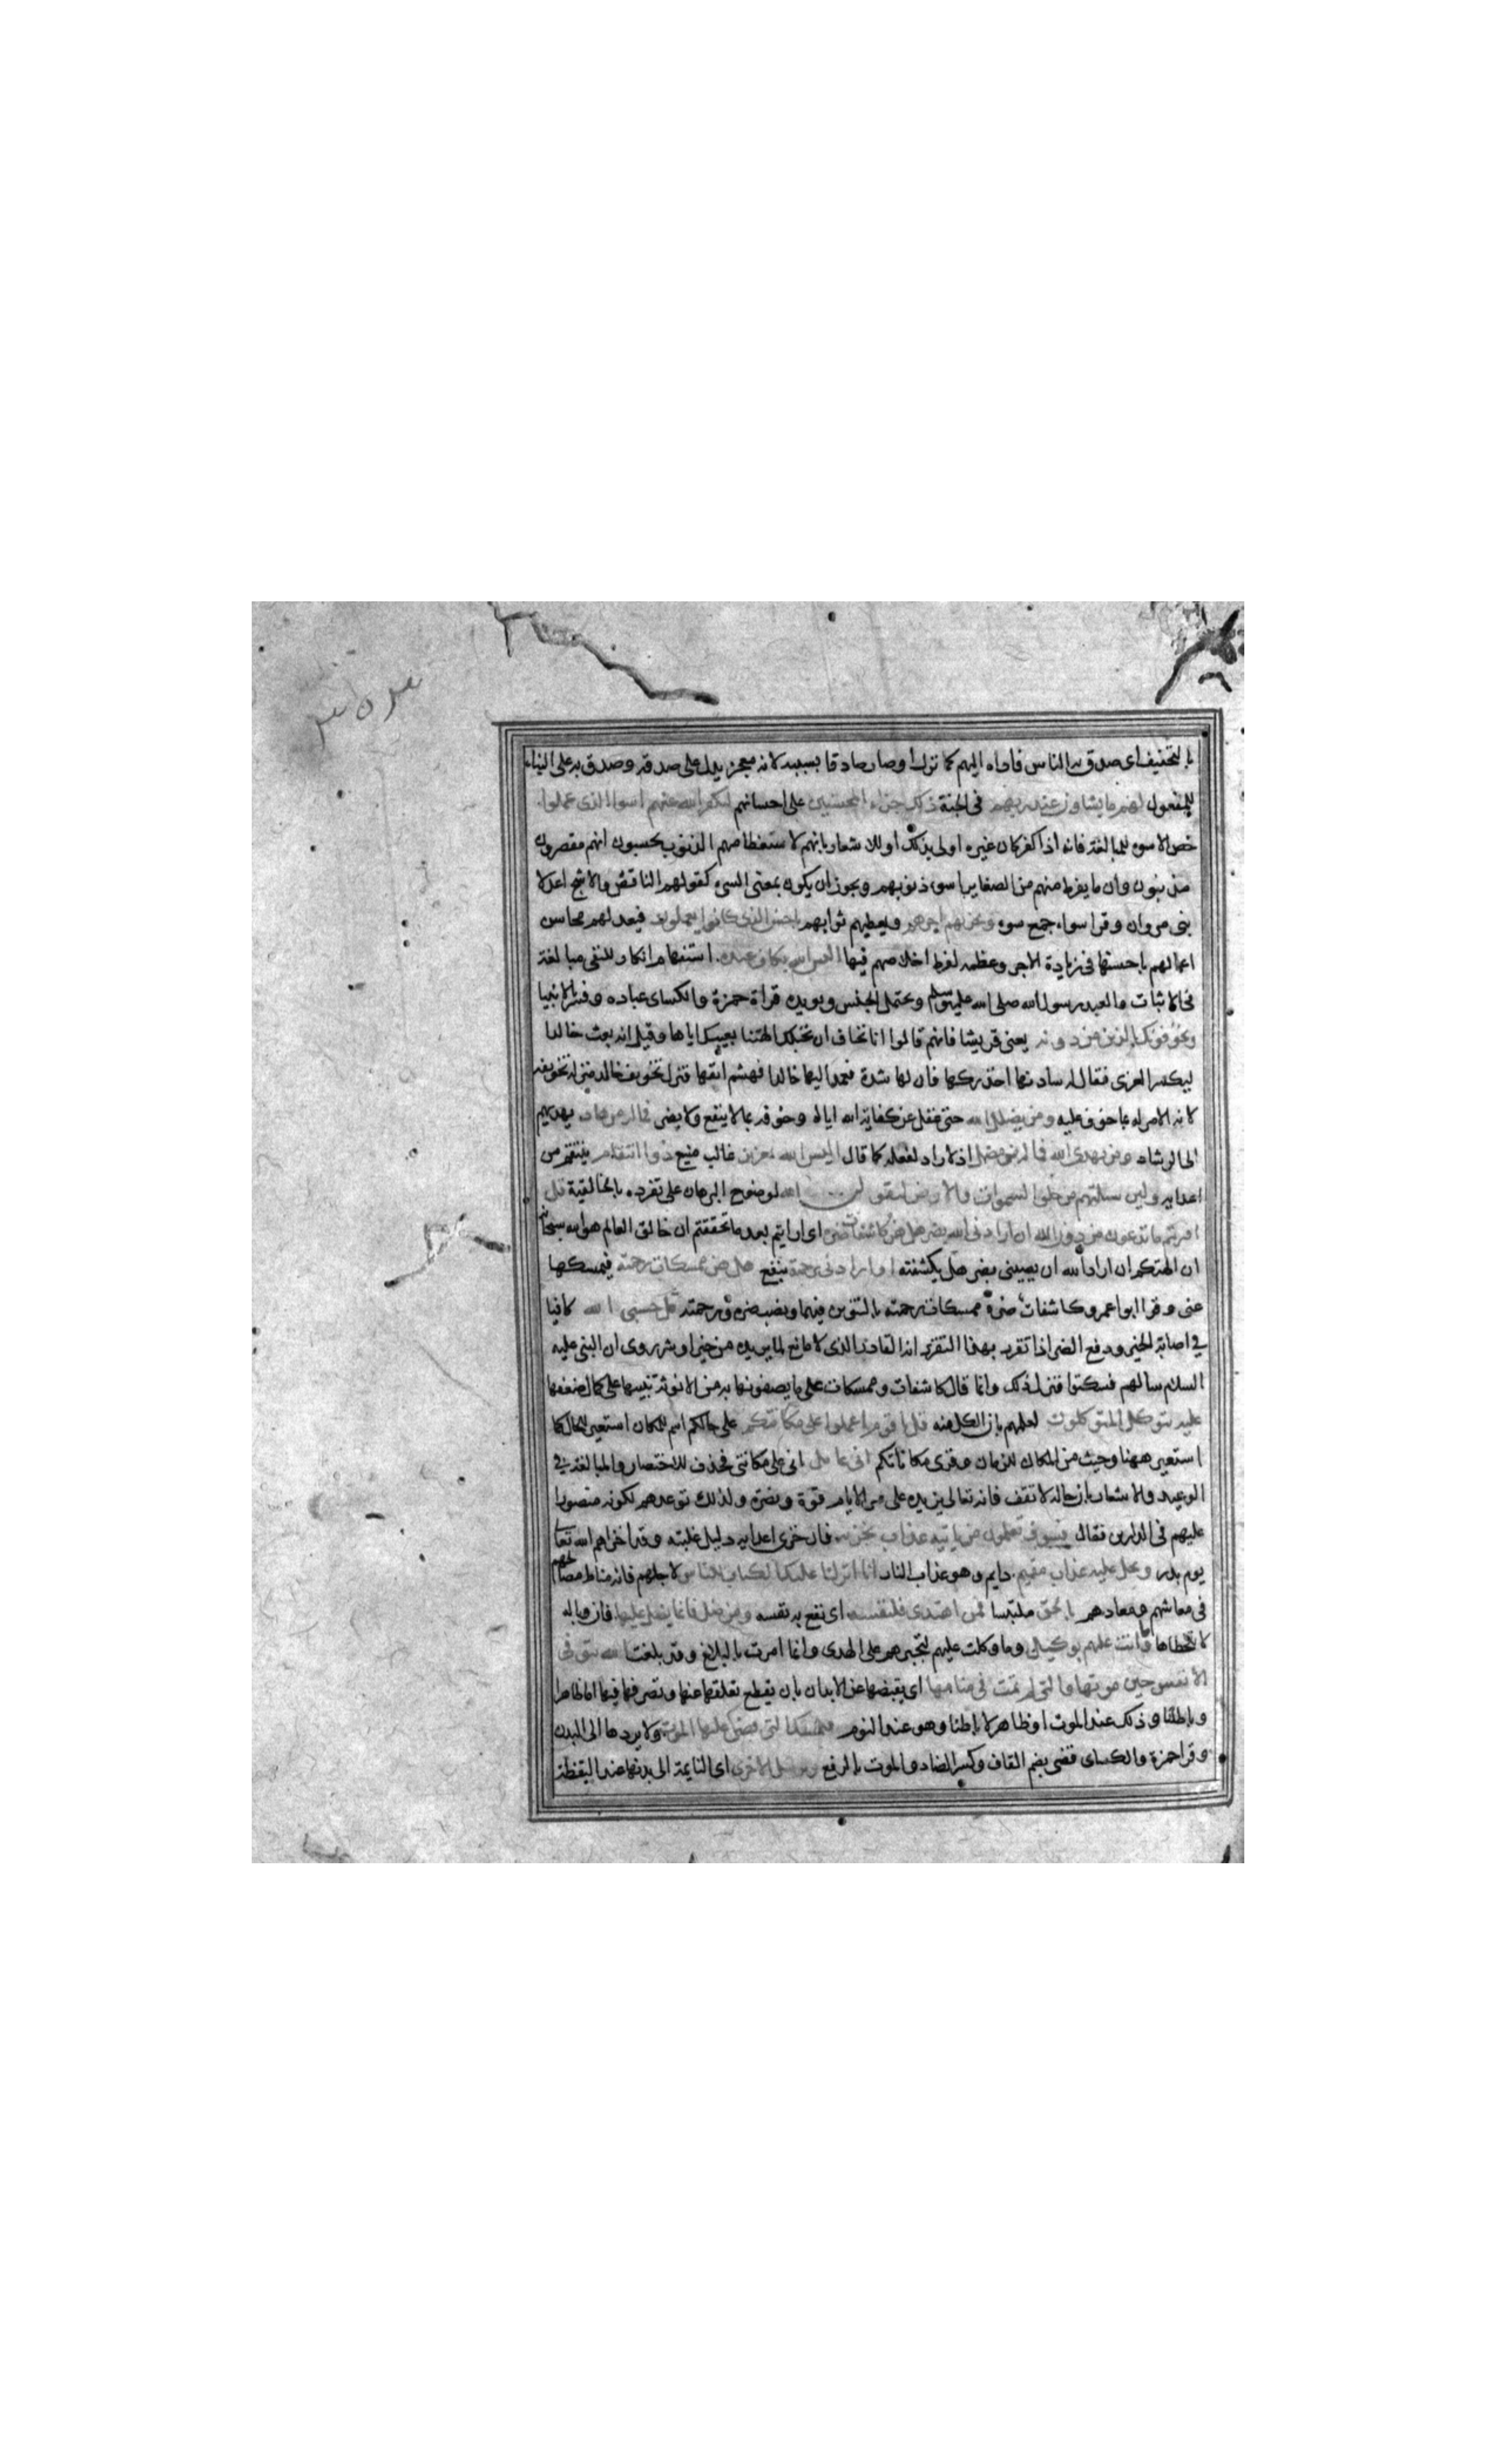 ٣٥٣
بالتخفيف اى صدق به الناس فاداه اليهم كما نزل او صار صادقا بسببه لانه معجز يدل على صدقه وصدق به على البناء
للمفعول لهم ما يشاؤن عند ربهم فى الجنة ذلك جزاء المحسنين على احسانهم ليكفر الله عنهم اسوا الذى عملوا
خص الاسوء للمبالغة فانه اذا كفر كان غيره اولى بذلك او للاشعار بانهم لاستعظامهم الذنوب يحسبون انهم مقصرون
مذنبون وان ما يفرط منهم من الصغاير اسوء ذنوبهم ويجوز ان يكون بمعنى السىء كقولهم الناقص والاشج اعدلا
بنى مروان وقرا اسواء جمع سوء ويجزيهم اجرهم ويعطيهم ثوابهم باحسن الذى كانوا يعملون فيعد لهم محاسن
اعمالهم باحسنها فى زيادة الاجر وعظمه لفرط اخلاصهم فيها اليس الله بكاف عبده استفهام انكار للنفى مبالغة
فى الاثبات والعبد رسول الله صلى الله عليه وسلم ويحتمل الجنس ويويده قراة حمزة والكساى عباده وفسر بالانبيا
ويخوفونك بالذين من دونه يعنى قريشا فانهم قالوا انا نخاف ان تخبلك الهتنا بعيبك اياها وقيل انه بعث خالدا
ليكسر العزى فقال له سادنها احذركها فان لها شدة فعمد اليها خالد فهشم انفها فنزل تخويف خالد منزلة تخويفه
لانه الامر له بما خوف عليه ومن يضلل الله حتى غفل عن كفاية الله اياه وخوفه بما لا ينفع ولا يضر فما له من هاد يهديهم
الى الرشاد ومن يهدى الله فما له من مضل اذ لا راد لفعله كما قال اليس الله بعزيز غالب منيع ذوا انتقام ينتقم من
اعدايه ولين سالتهم من خلق السموات والارض ليقولن الله لوضوح البرهان على تفرده بالخالقية قل
افريتم ما تدعون من دون الله ان ارادنى الله بضر هل هن كاشفات ضره اى ارايتم بعد ما تحققتم ان خالق العالم هو الله سبحانه
ان الهتكم ان اراد الله ان يصيبنى بضر هل يكشفنه او ارادنى برحمة بنفع هل هن ممسكات رحمته فيمسكها
عنى وقرا ابو عمرو كاشفات ضره ممسكات رحمته بالتنوين فيهما ونصب ضره ورحمته قل حسبى الله كافيا
في اصابة الخير ودفع الضر اذا تقرر بهذا التقرير انه القادر الذى لا مانع لما يريده من خير او شر روى ان النبى عليه
السلام سالهم فسكتوا فنزل ذلك وانما قال كاشفات وممسكات على ما يصفونها به من الانوثة تنبيها على كمال ضعفها
عليه يتوكل المتوكلون لعلمهم بان الكل منه قل يا قوم اعملوا على مكانتكم على حالكم اسم للمكان استعير للحال كما
استعير ههنا وحيث من المكان للزمان وقرى مكاناتكم انى عامل انى على مكانتى فحذف للاختصار والمبالغة في
الوعيد والاشعار بان حاله لا تقف فانه تعالى يزيده على مر الايام قوة ونصرة ولذلك توعدهم بكونه منصورا
عليهم فى الدارين فقال فسوف تعلمون من ياتيه عذاب يخزيه فان خزى اعدايه دليل غلبته وقد اخزاهم الله تعالى
يوم بدر ويحل عليه عذاب مقيم دايم وهو عذاب النار انا انزلنا عليك الكتاب للناس لاجلهم فانه مناط مصالحهم
فى معاشهم ومعادهم بالحق ملتبسا فمن اهتدى فلنفسه اى نفع به نفسه ومن ضل فانما يضل عليها فان وباله
لا يتخطاها وما انت عليهم بوكيل وما وكلت عليهم لتجبرهم على الهدى وانما امرت بالبلاغ وقد بلغت الله يتوفى
الانفس حين موتها والتى لم تمت فى منامها اى يقبضها عن الابدان بان يقطع تعلقها عنها وتصرفها فيها اما ظاهرا
وباطنا وذلك عند الموت او ظاهرا لا باطنا وهو عند النوم فيمسك التى قضى عليها الموت ولا يردها الى البدن
وقرا حمزة والكساى قضى بضم القاف وكسر الضاد والموت بالرفع ويرسل الاخرى اى النايمة الى بدنها عند اليقظة